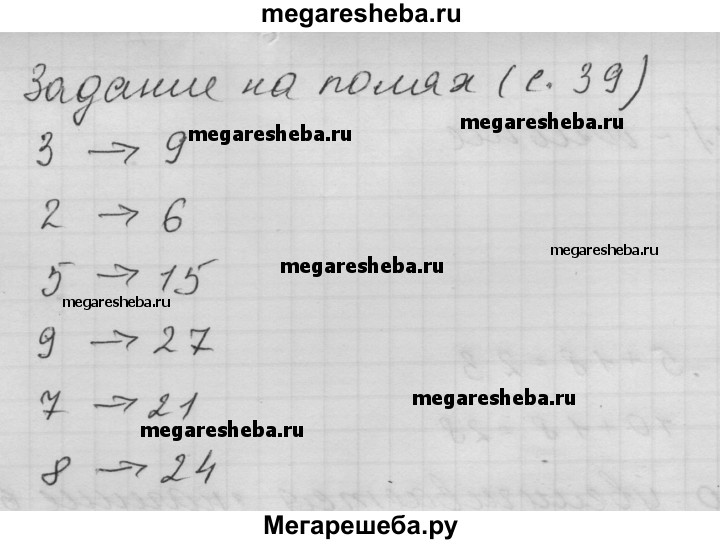 megaresheba.ru
Задание на полях (с. 39)
megaresheba.ru
3 → 9 megaresheba.ru
2 → 6
megaresheba.ru
megaresheba.ru
5 → 15
megaresheba.ru
9 → 27
7 → 21
megaresheba.ru
megaresheba.ru
8 → 24
Мегарешеба.ру